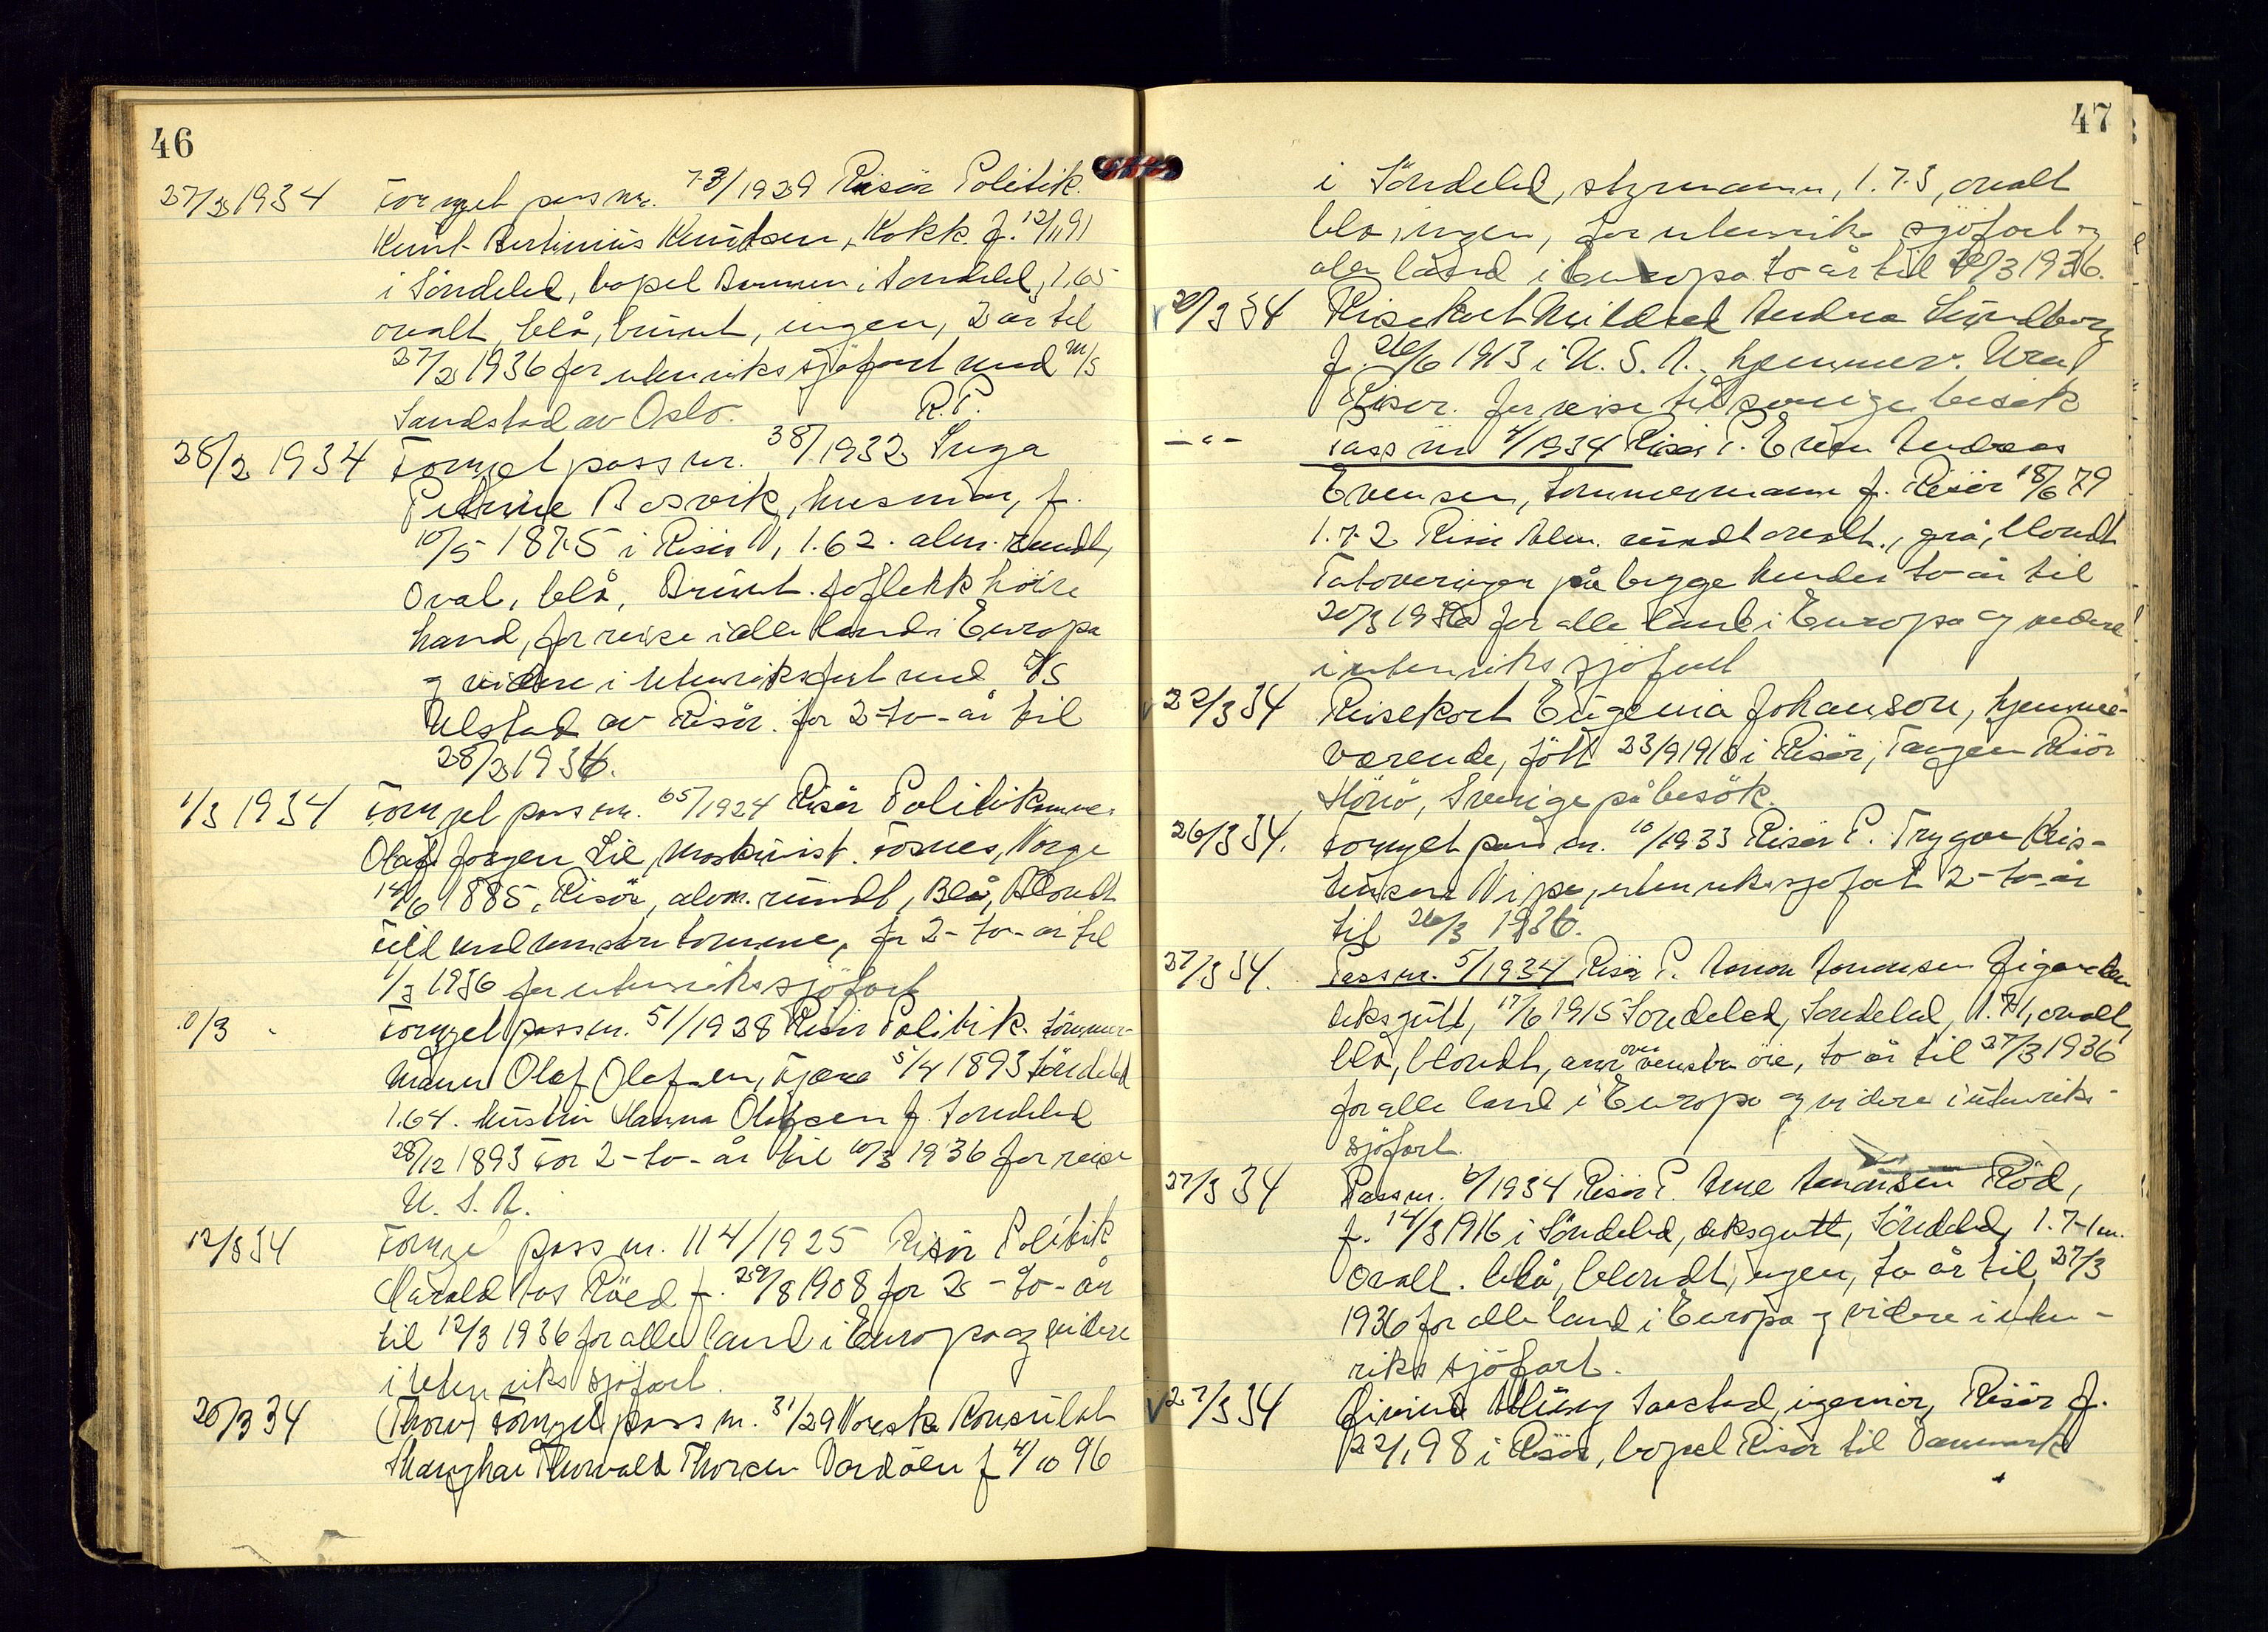 46
27/2 1934 Fornyet pass nr. 73/1929 Risör Politik.
Knut Bertinius Knutsen, Kokk. f. 12/11 91
i Söndeled, bopel i Söndeled, 1.65
ovalt, blå, brunt, ingen, 2 år til
27/2 1936 for utenriks sjöfart med m/s
Sandstad av Oslo. R.P.
28/2 1934 Fornyet pass nr. 38/1932 Inga
Petrine Bosvik, husmor, f.
10/5 1875 i Risör N, 1.62. alm. rundt,
Oval, blå, Brunt. föflekk höire
hand, for reise i alle land i Europa
og videre i utenriksfart med D/S
Ulstad av Risör. for 2-to-år til
28/2 1936.
1/3 1934 Fornyet pass nr. 65/1924 Risör Politikamme.
Olaf Jörgen Lie, Maskinist. Fosnes, Norge
14/6 1885, Risör, alm. rundt, Blå, Blondt
Feil ved venstre tomme, for 2-to-år til
1/3 1936 for utenriks sjöfart
0/3 - Fornyet pass nr. 51/1928 Risör Politik. tömmer-
mann Olaf Olafsen, Kjære 5/4 1893 Söndeled
1.64. Hustru Hanna Olafsen f. Sondeled
28/12 1893 For 2-to-år til 10/3 1936 for reise
U.S.A.
12/3 34 Fornyet pass nr. 114/1925 Risör Politik
Harald Aas Röed f. 29/8 1908 for 2-to-år
til 12/3 1936 for alle land i Europa og videre
i uten riks sjöfart.
20/3 34 (Thorv) Fornyet pass nr. 31/29 Norske Konsulat
Shanghai Thorvald Thorsen Vardöen f 4/10 96
47
i Söndeled, styrmann, 1.73, ovalt
blå, ingen, for utenriks sjöfart og
alle land i Europa to år til 20/3 1936.
20/3 34 Reisekort Mildred Andrea Lundborg
f. 26/6 1913 i U.S.A. hjemmev. Ural
Risör. for reise til Sverige besök
-"- Pass nr 4/1934 Risör P. Even Andreas
Evensen, tömmermann f. Risör 18/6 79
1.72 Risör Alm. rundt ovalt., grå, blondt
Tatoveringer på begge hender to år til
20/3 1936 for alle land i Europa og videre
i utenriks sjöfart
22/3 34 Reisekort Eugenia Johanson, hjemme-
værende, fött 23/9 1916 i Risör, Tangen Risör
Hönö, Sverige på besök.
26/3 34. Fornyet pass nr. 10/1933 Risör P. Trygve Kris-
tensen Nipe, utenriks sjöfart 2-to-år
til 26/3 1936.
27/3 34. Pass nr. 5/1934 Risör P. Aanon Aanonsen
deksgutt, 17/6 1915 Sondeled, Sondeled, 1.71, ovalt,
blå, blondt, arr over venstre öie, to år til 27/3 1936
for alle land i Europa og videre i utenriks-
sjöfart.
27/3 34 Pass nr. 6/1934 Risör P. Arne Aanonsen Röd,
f. 14/3 1916 i Söndeled, deksgutt, Söndeled, 1.71 m.
Ovalt. blå, blondt, ingen, to år til 27/3
1936 for alle land i Europa og videre i uten-
riks sjöfart.
27/3 34 Öivind Saxstad, ingeniör, Risör f.
22/1 98 i Risör, bopel Risör til Danmark